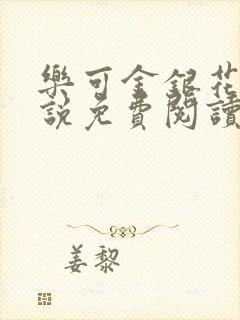 樂可金銀花
說免費閱讀
姜黎